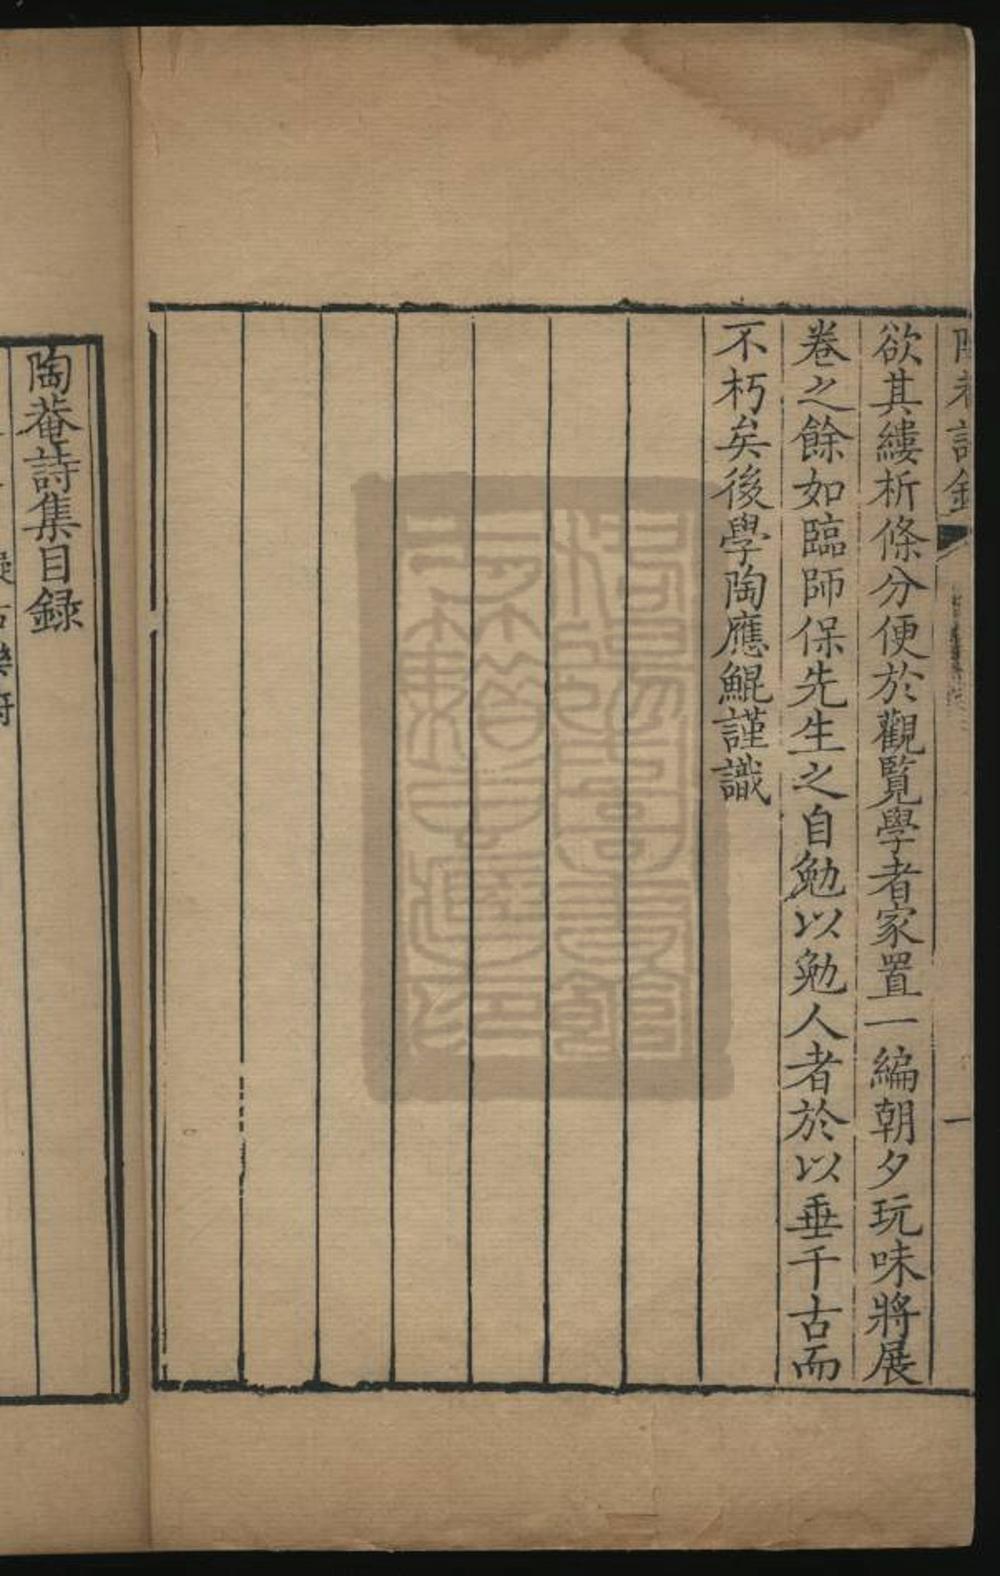 欲其縷析條分便於觀覽學者家置一編朝夕玩味將展
卷之餘如臨師保先生之自勉以勉人者於以垂千古而
不朽矣後學陶應鯤謹識
陶菴詩集目録